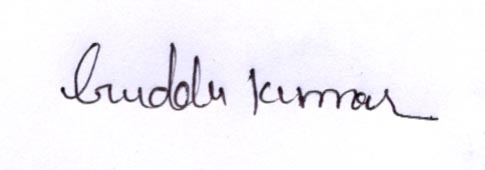 buddu kumar